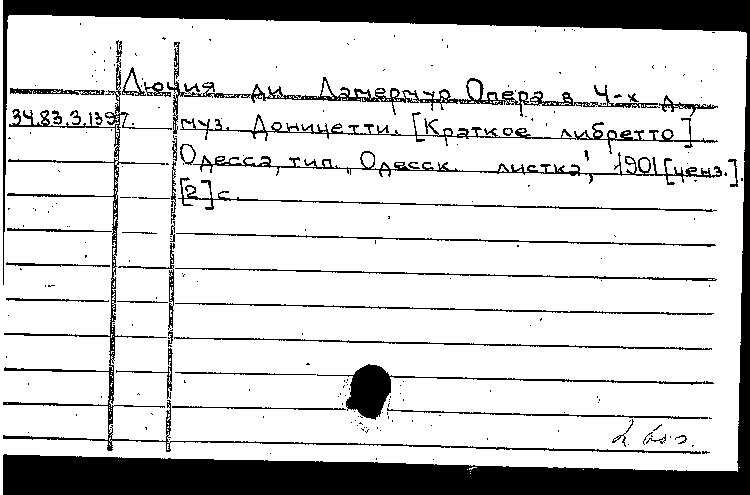 Лючия ди Ламермур Опера в 4-х д.,
34.83.3.1397. муз. Доницетти. [Краткое либретто]
Одесса, тип. "Одесск. листка", 1901 [ценз.].
[2] с.